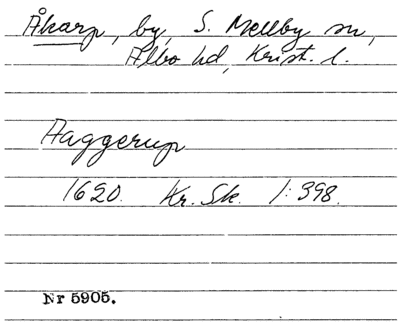 Åkarp, by, S. Mellby sn,
Albo hd, Krist. l.
Aaggerup
1620. Kr. Sk. 1:398.
Nr 5905.